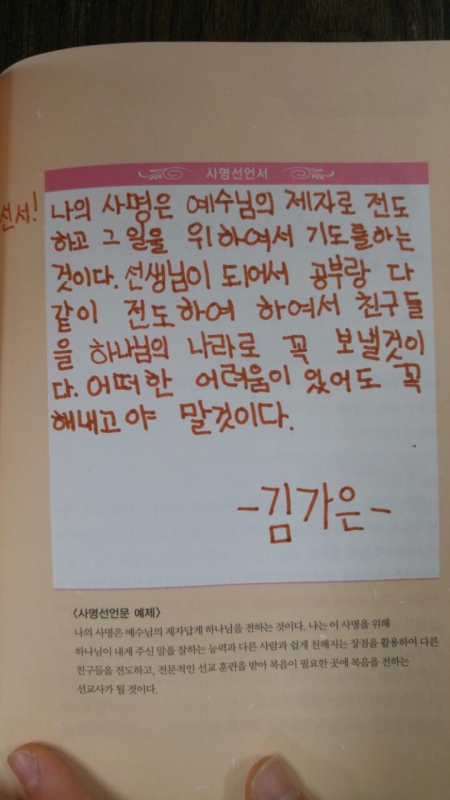 사명선언서
선서! 나의 사명은 예수님의 제자로 전도
하고 그일을 위하여서 기도를하는
것이다. 선생님이 되어서 공부랑 다
같이 전도하여 하여서 친구들
을 하나님의 나라로 꼭 보낼것이
다. 어떠한 어려움이 있어도 꼭
해내고야 말것이다.
-김가은-
<사명선언문 예제>
나의 사명은 예수님의 제자답게 하나님을 전하는 것이다. 나는 이 사명을 위해
하나님이 내게 주신 말을 잘하는 능력과 다른 사람과 쉽게 친해지는 장점을 활용하여 다른
친구들을 전도하고, 전문적인 선교 훈련을 받아 복음이 필요한 곳에 복음을 전하는
선교사가 될 것이다.